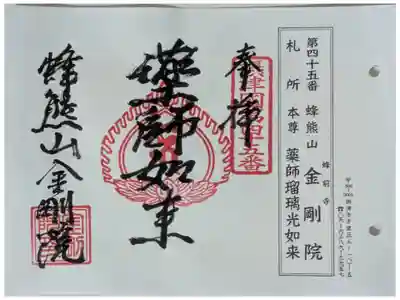 第四十五番
札所
蜂熊山
蜂前寺
金剛院
本尊 薬師瑠璃光如来
奉拝
薬師如来
蜂熊山金剛院